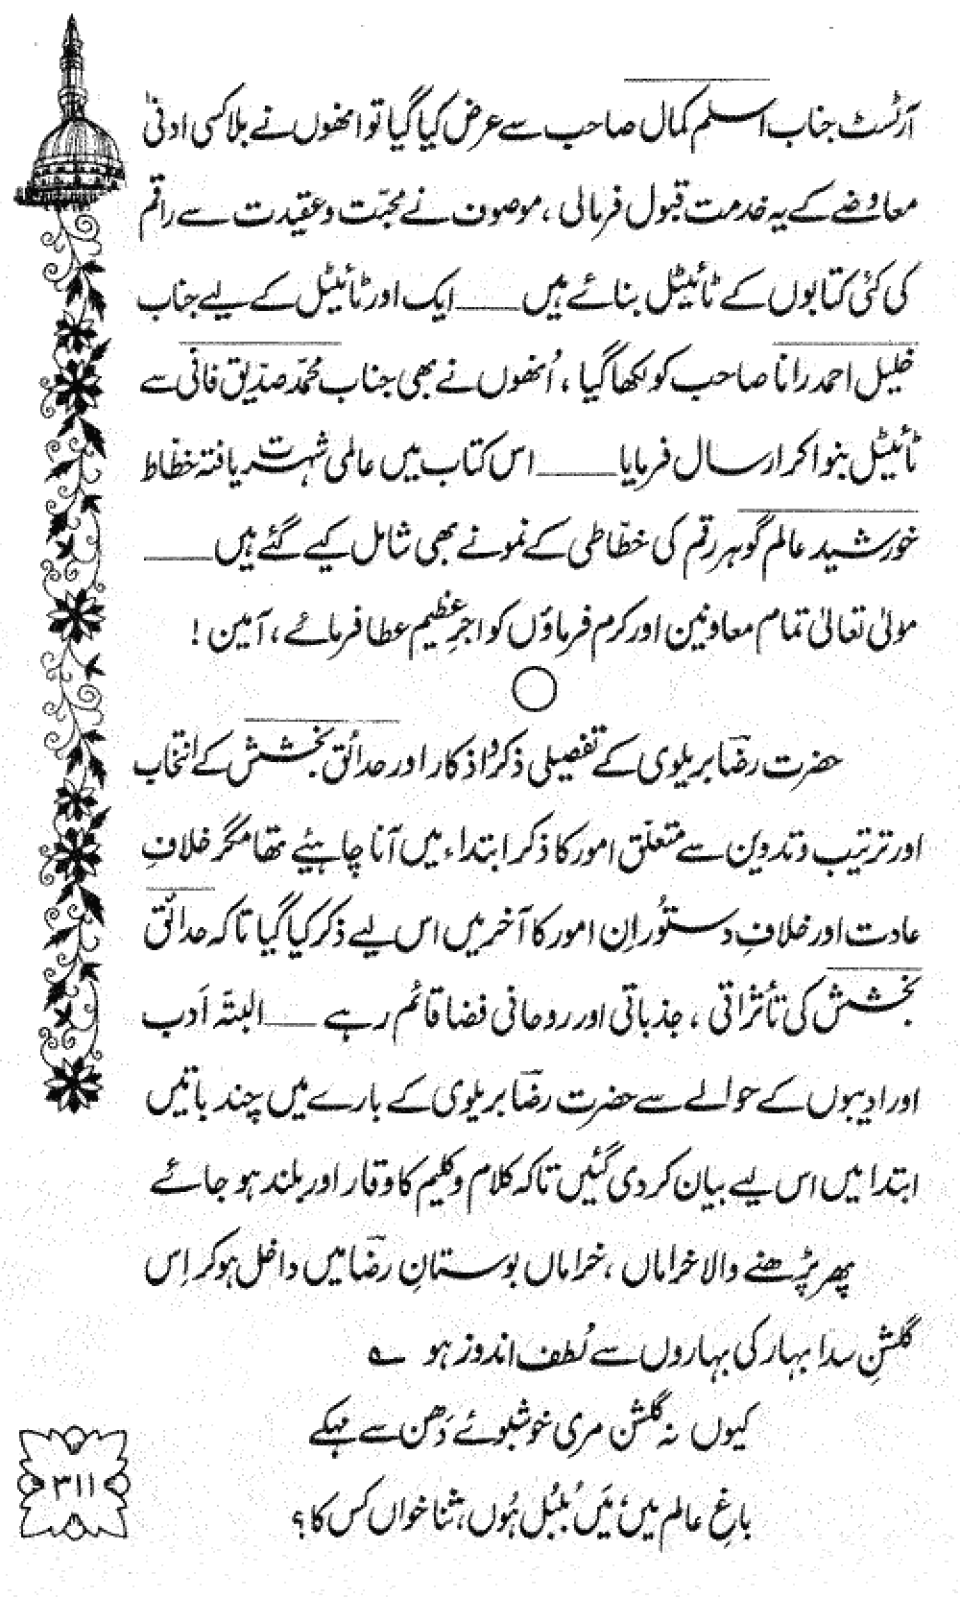 آرٹسٹ جناب اسلم کمال صاحب سے عرض کیا گیا تو انھوں نے بلا کسی ادنیٰ
معاوضے کے یہ خدمت قبول فرمالی ، موصوف نے محبّت و عقیدت سے راقم
کی کئی کتابوں کے ٹائیٹل بنائے ہیں ــــــ ایک اور ٹائیٹل کے لیے جناب
خلیل احمد رانا صاحب کو لکھا گیا ، اُنھوں نے بھی جناب محمّد صدّیق فانی سے
ٹائیٹل بنوا کر ارسال فرمایا ــــــ اس کتاب میں عالمی شہرت یافتہ خطّاط
خورشید عالم گوہر رقم کی خطّاطی کے نمونے بھی شامل کیے گئے ہیں ــــــ
مولیٰ تعالیٰ تمام معاونین اور کرم فرماؤں کو اجرِ عظیم عطا فرمائے ، آمین !
حضرت رضؔا بریلوی کے تفصیلی ذکر و اذکار اور حدائق بخشش کے انتخاب
اور ترتیب و تدوین سے متعلّق امور کا ذکر ابتداء میں آنا چاہیئے تھا مگر خلافِ
عادت اور خلافِ دستُور اِن امور کا آخر میں اس لیے ذکر کیا گیا تاکہ حدائق
بخشش کی تأثراتی ، جذباتی اور روحانی فضا قائم رہے ــــــ البتّہ اَدب
اور ادیبوں کے حوالے سے حضرت رضؔا بریلوی کے بارے میں چند باتیں
ابتدا میں اس لیے بیان کر دی گئیں تاکہ کلام و کلیم کا وقار اور بلند ہو جائے
پھر پڑھنے والا خراماں ، خراماں بوستانِ رضؔا میں داخل ہو کر اِس
گلشنِ سدا بہار کی بہاروں سے لُطف اندوز ہو ؎
کیوں نہ گلشن مری خوشبوئے دَھن سے مہکے
باغِ عالم میں مَیں بُلبُل ہُوں، ثنا خواں کس کا ؟
۳۱۱